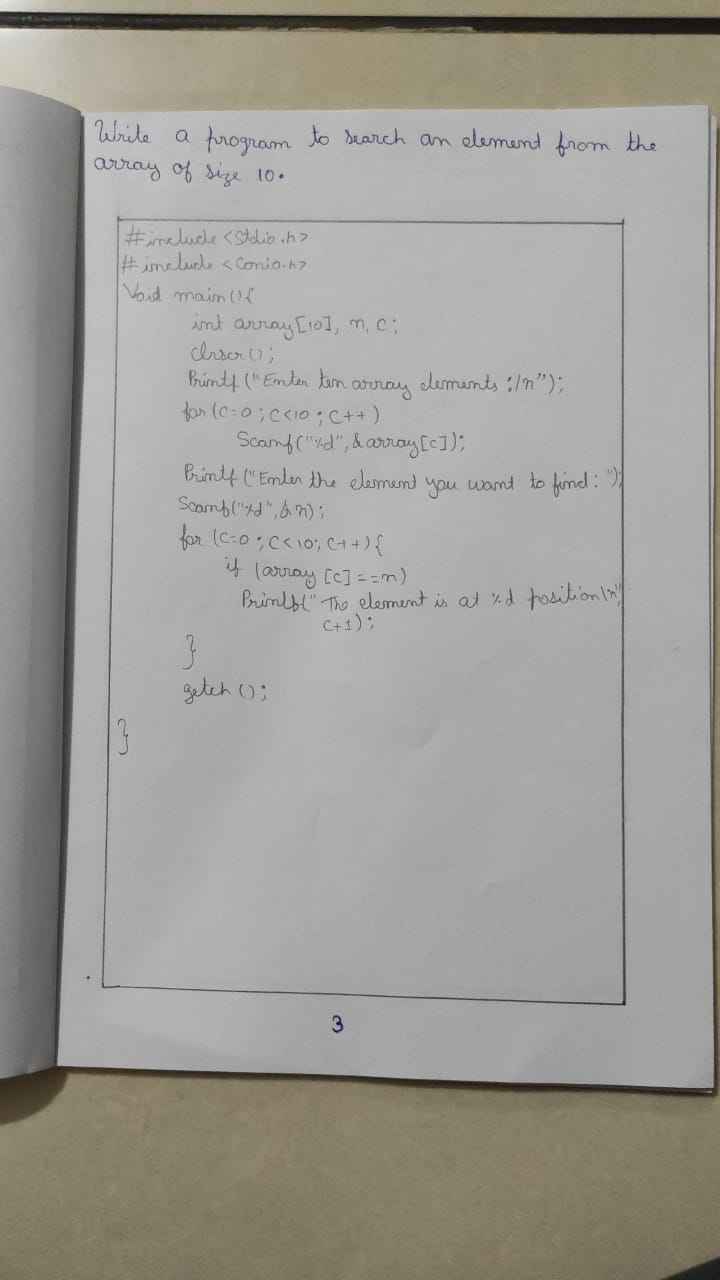 Write a program to search an element from the
array of size 10.
#include <Stdio.h>
#include <Conio.h>
Void main(){
int array[10], n, c;
clrscr();
Printf ("Enter ten array elements :/n");
for (c=0 ; c<10 ; c++)
Scanf("%d", &array[c]);
Printf ("Enter the element you want to find: ");
Scanf("%d", &n);
for (c=0 ; c<10; c++){
if (array [c]==n)
Printf(" The element is at %d position\n",
c+1);
}
getch ();
}
3